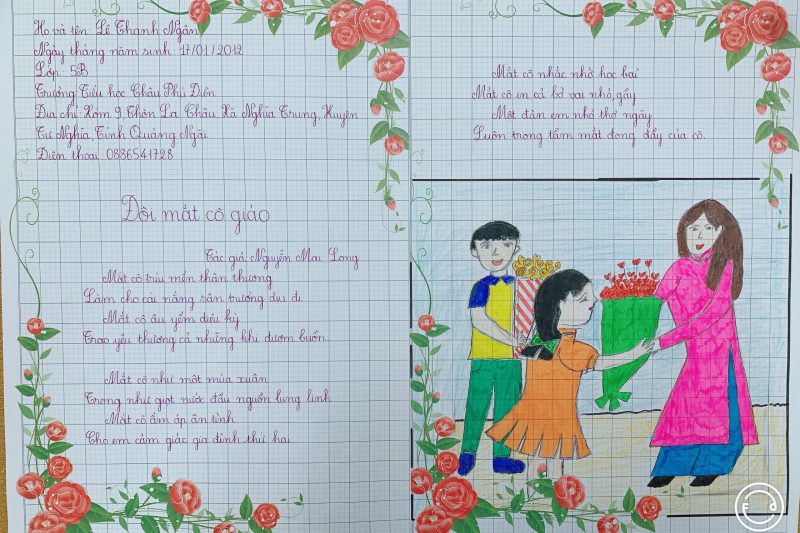 Họ và tên: Lê Thanh Ngân
Ngày tháng năm sinh: 17/01/2012
Lớp: 5B
Trường Tiểu học Châu Phú Diên
Địa chỉ: Hóm 9, Thôn La Châu, Xã Nghĩa Trung, Huyện
Tư Nghĩa, Tỉnh Quảng Ngãi
Điện thoại: 0886541728
Đôi mắt cô giáo
Tác giả: Nguyễn Mai Long
Mắt cô trìu mến thân thương
Làm cho cái nắng sân trường dịu đi
Mắt cô âu yếm diệu kỳ
Trao yêu thương cả những khi đượm buồn.
Mắt cô như một mùa xuân
Trong như giọt nước đầu nguồn lung linh
Mắt cô ấm áp ân tình
Cho em cảm giác gia đình thứ hai
Mắt cô nhắc nhở học bài
Mắt cô in cả bờ vai nhỏ gầy
Một đàn em nhỏ thơ ngây
Luôn trong tầm mắt đong đầy của cô.